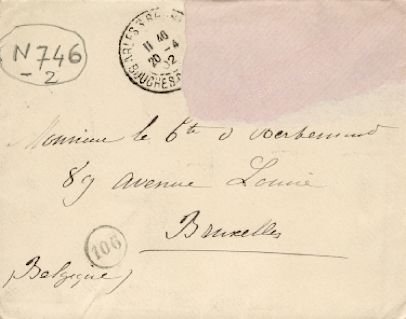 N 746
- 2
ARLES S R
11 40
20 - 4
02
BOUCHES
Monsieur le Cte d
89 avenue Louise
Bruxelles
106
(Belgique)